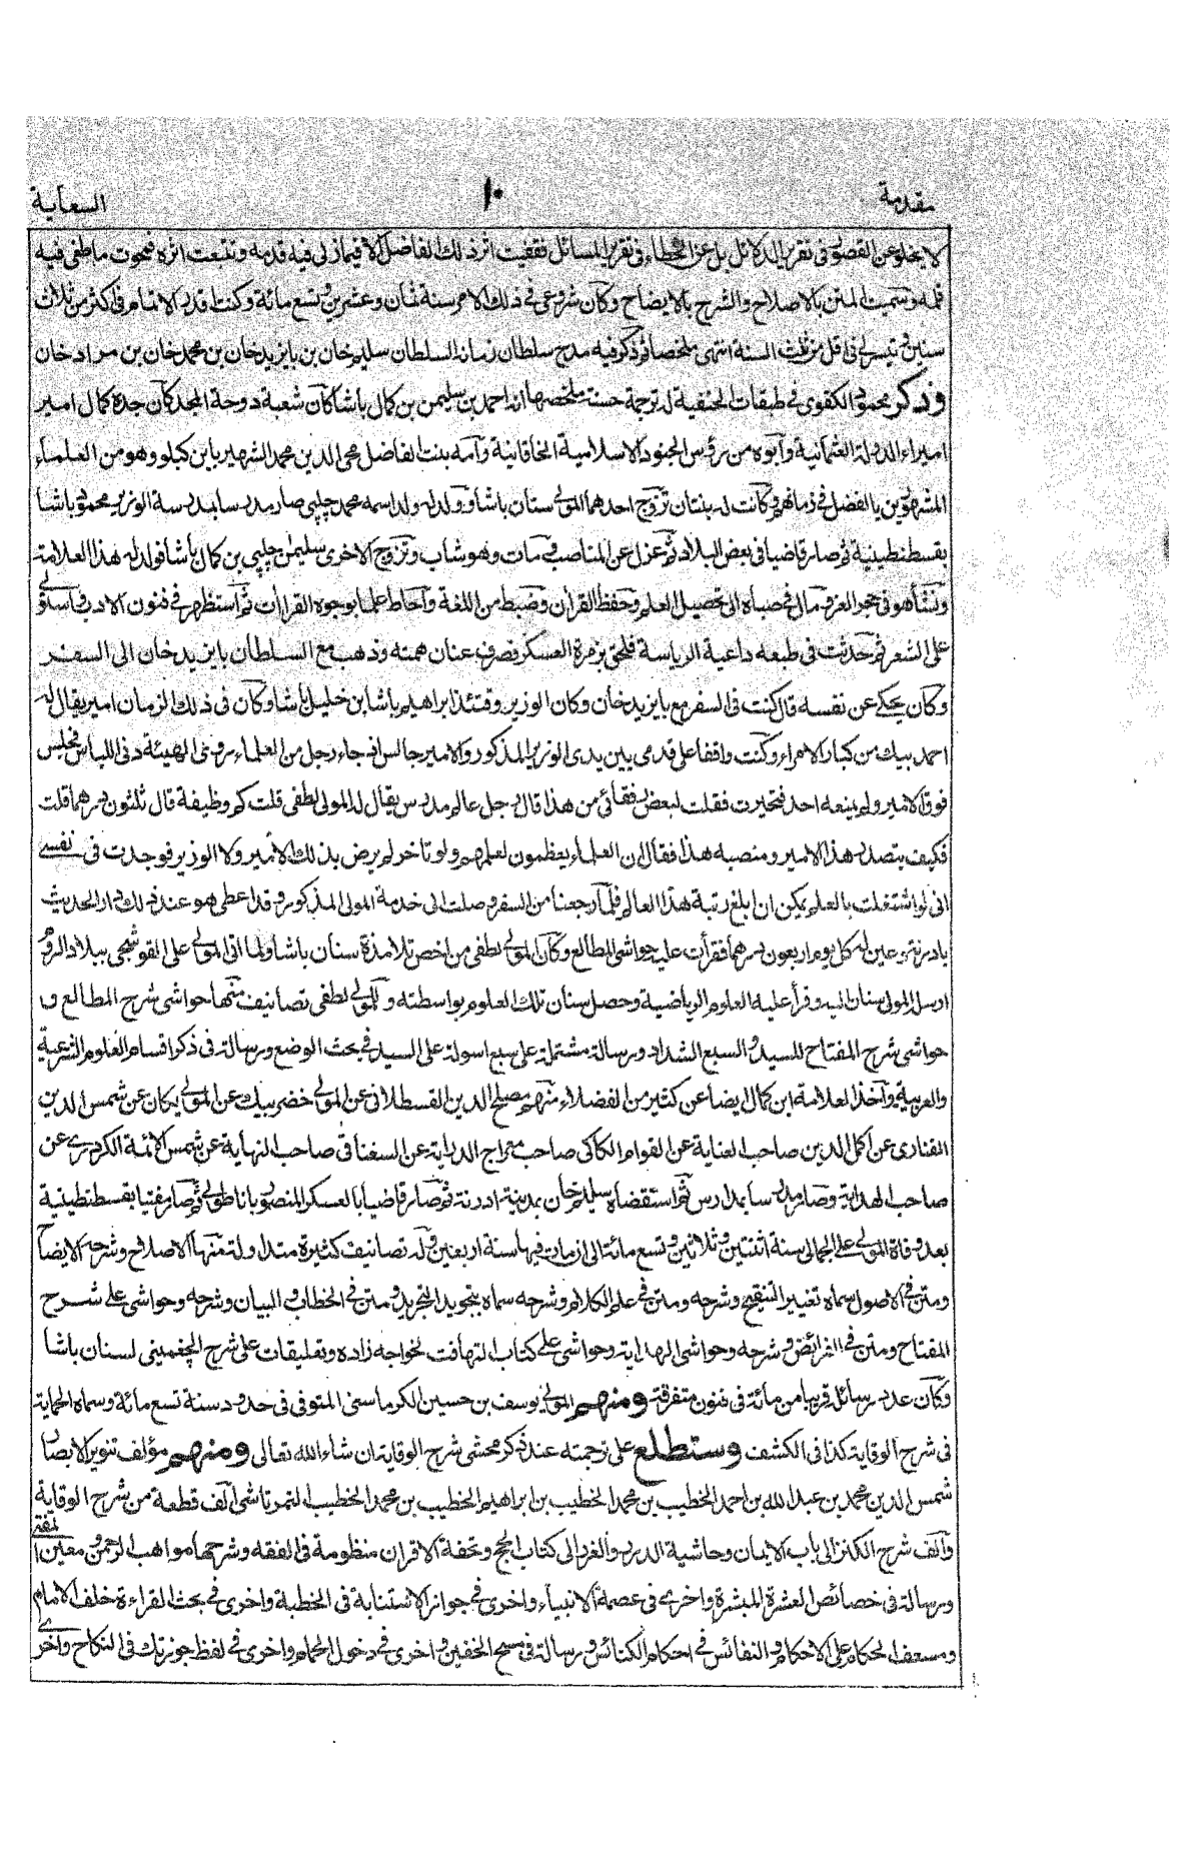 مقدمة
١٠
السعاية
لا يخلو عن القصور فى تقرير الدلائل بل عن الخطاء فى تقرير المسائل نقفيت اثر ذلك الفاضل الا فيما زل فيه قدمه وتتبعت اثره فمحوت ما طغى فيه
قلمه وسميت المتن بالاصلاح والشرح بالايضاح وكان شروعى فى ذلك الامر سنة ثمان وعشرين وتسع مائة وكنت اقدر الاتمام فى اكثر من ثلاث
سنين وتيسر لى فى اقل من ثلث السنة انتهى ملخصا ثم ذكر فيه مدح سلطان زمانه السلطان سليم خان بن بايزيد خان بن محمد خان بن مراد خان
وذكر محمود الكفوى فى طبقات الحنفية له ترجمة حسنة ملخصها انه احمد بن سليمن بن كمال باشا كان شعبة دوحة المجد كان جده كمال امير
امراء الدولة العثمانية وابوه من رؤس الجنود الاسلامية الخاقانية وامه بنت الفاضل محى الدين محمد الشهير بابن كبلو وهو من العلماء
المشهورين بالفضل فى زمانهم وكانت له بنتان تزوج احدهما المولى سنان باشا وولد له ولد اسمه محمد چلبى صار مدرسا بمدرسة الوزير محمود باشا
بقسطنطينية ثم صار قاضيا فى بعض البلاد ثم عزل عن المناصب ومات وهو شاب وتزوج الاخرى سليمن چلبى بن كمال باشا فولد له هذا العلامة
ونشأ هو فى حجر العز ومال فى صباه الى تحصيل العلم وحفظ القران وضبط من اللغة واحاط علما بوجوه القراات ثم استظهر فى فنون الادب واستولى
على الشعر ثم حدثت فى طبعه داعية الرياسة فلحق بزمرة العسكر فصرف عنان همته وذهب مع السلطان بايزيد خان الى السفر
وكان يحكى عن نفسه قال كنت فى السفر مع بايزيد خان وكان الوزير وقتئذ ابراهيم باشا بن خليل باشا وكان فى ذلك الزمان امير يقال له
احمد بيك من كبار الامراء وكنت واقفا على قدمى بين يدى الوزير المذكور والامير جالس اذ جاء رجل من العلماء رث الهيئة دنى اللباس فجلس
فوق الامير ولم يمنعه احد فتحيرت فقلت لبعض رفقائى من هذا قال رجل عالم مدرس يقال له المولى لطفى قلت كم وظيفة قال ثلثون درهما قلت
فكيف يتصدر هذا الامير ومنصبه هذا فقال ان العلماء يعظمون لعلمهم ولو تاخر لم يرض بذلك الامير ولا الوزير فوجدت فى نفسى
انى لو اشتغلت بالعلم يمكن ان ابلغ رتبة هذا العالم فلما رجعنا من السفر وصلت الى خدمة المولى المذكور وقد اعطى هو عند ذلك دار الحديث
بادرنة وعين له كل يوم اربعون درهما فقرأت عليه حواشى المطالع وكان المولى لطفى من اخص تلامذة سنان باشا ولما اتى المولى على القوشجى ببلاد الروم
ارسل المولى سنان اليه وقرأ عليه العلوم الرياضية وحصل سنان تلك العلوم بواسطته وللمولى لطفى تصانيف منها حواشى شرح المطالع و
حواشى شرح المفتاح للسيد والسبع الشداد ورسالة مشتملة على سبع اسولة على السيد فى بحث الوضع ورسالة فى ذكر اقسام العلوم الشرعية
والعربية واخذ العلامة ابن كمال ايضا عن كثير من الفضلاء منهم مصلح الدين القسطلانى عن المولى خضر بيك عن المولى يكان عن شمس الدين
الفنارى عن اكمل الدين صاحب العناية عن القوام الكاكى صاحب معراج الدراية عن السغناقى صاحب النهاية عن شمس الائمة الكردرى عن
صاحب الهداية وصار مدرسا بمدارس ثم استقضاه سليم خان بمدينة ادرنة ثم صار قاضيا بالعسكر المنصور باناطولى ثم صار مفتيا بقسطنطينية
بعد وفاة المولى على الجمالى سنة اثنتين وثلاثين وتسع مائة الى ان مات فيها سنة اربعين وله تصانيف كثيرة متداولة منها الاصلاح وشرحه الايضاح
ومتن فى الاصول سماه تغيير التنقيح وشرحه ومتن فى علم الكلام وشرحه سماه بتجويد التجريد ومتن فى الخطاب والبيان وشرحه وحواشى على شرح
المفتاح ومتن فى الفرائض وشرحه وحواشى الهداية وحواشى على كتاب التهافت لخواجه زاده وتعليقات على شرح الچغمينى لسنان باشا
وكان عدد رسائله قريبا من مائة فى فنون متفرقة ومنهم المولى يوسف بن حسين الكرماسنى المتوفى فى حدود سنة تسع مائة وسماه الحماية
فى شرح الوقاية كذا فى الكشف وستطلع على ترجمته عند ذكر محشى شرح الوقاية ان شاء الله تعالى ومنهم مؤلف تنوير الابصار
شمس الدين محمد بن عبد الله بن احمد الخطيب بن محمد الخطيب بن ابراهيم الخطيب بن محمد الخطيب التمرتاشى الف قطعة من شرح الوقاية
والف شرح الكنز الى باب الايمان وحاشية الدرر والغرر الى كتاب الحج وتحفة الاقران منظومة فى الفقه وشرحها مواهب الرحمن ومعين المفتى
ورسالة فى خصائص العشرة المبشرة واخرى فى عصمة الانبياء واخرى فى جواز الاستنابة فى الخطبة واخرى فى بحث القراءة خلف الامام
ومسعف الحكام على الاحكام والنفائس فى احكام الكنائس ورسالة فى مسح الخفين واخرى فى دخول الحمام واخرى فى لفظ جوزتك فى النكاح واخرى